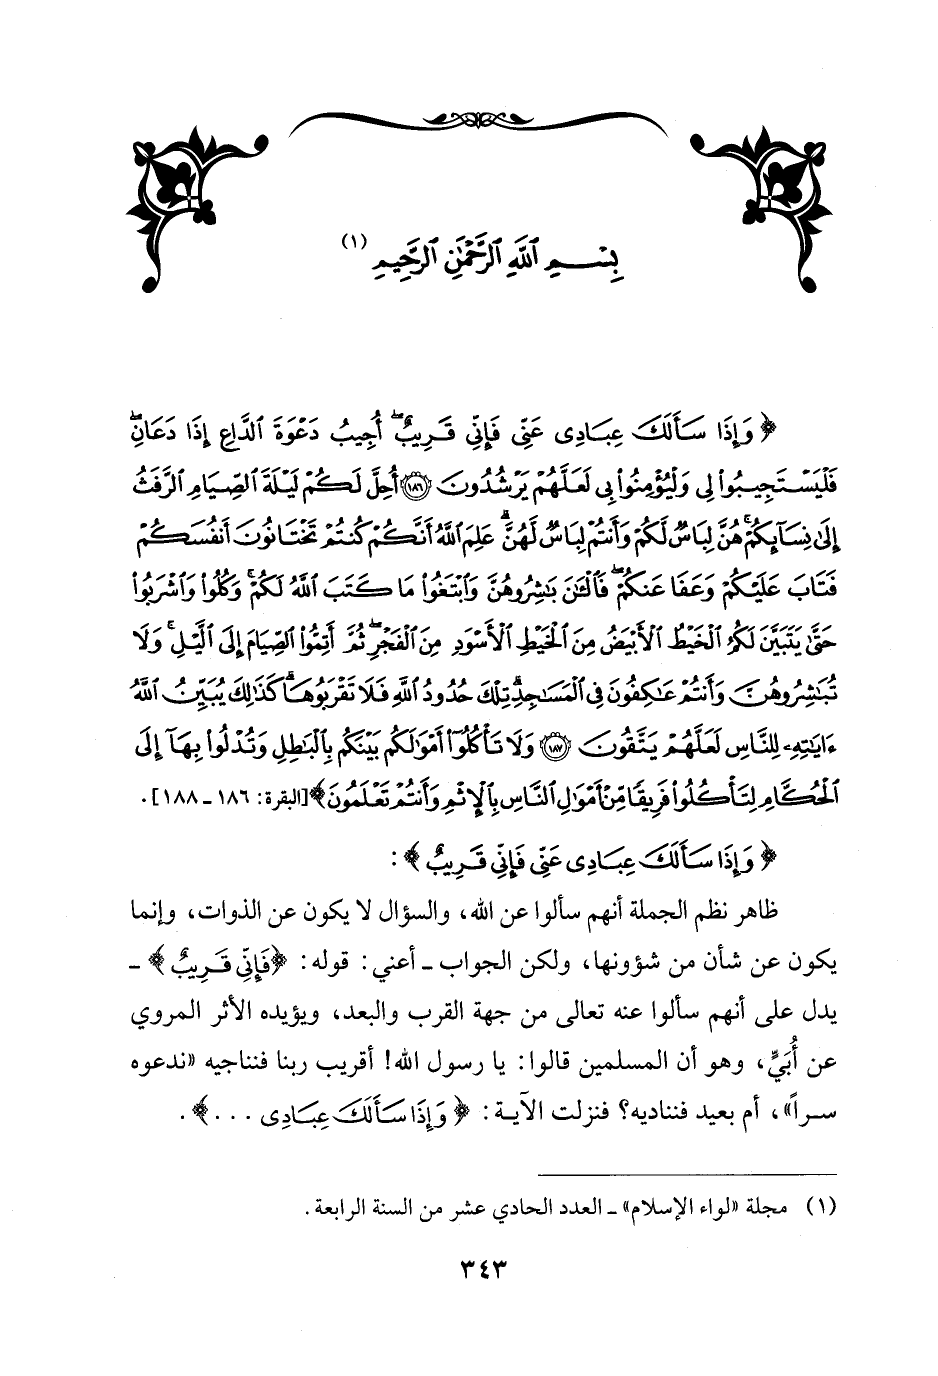 بِسْمِ ٱللَّهِ ٱلرَّحْمَٰنِ ٱلرَّحِيمِ (١)
﴿ وَإِذَا سَأَلَكَ عِبَادِى عَنِّى فَإِنِّى قَرِيبٌ ۖ أُجِيبُ دَعْوَةَ ٱلدَّاعِ إِذَا دَعَانِ ۖ
فَلْيَسْتَجِيبُوا۟ لِى وَلْيُؤْمِنُوا۟ بِى لَعَلَّهُمْ يَرْشُدُونَ (١٨٦) أُحِلَّ لَكُمْ لَيْلَةَ ٱلصِّيَامِ ٱلرَّفَثُ
إِلَىٰ نِسَآئِكُمْ ۚ هُنَّ لِبَاسٌ لَّكُمْ وَأَنتُمْ لِبَاسٌ لَّهُنَّ ۗ عَلِمَ ٱللَّهُ أَنَّكُمْ كُنتُمْ تَخْتَانُونَ أَنفُسَكُمْ
فَتَابَ عَلَيْكُمْ وَعَفَا عَنكُمْ ۖ فَٱلْـَٰٔنَ بَٰشِرُوهُنَّ وَٱبْتَغُوا۟ مَا كَتَبَ ٱللَّهُ لَكُمْ ۚ وَكُلُوا۟ وَٱشْرَبُوا۟
حَتَّىٰ يَتَبَيَّنَ لَكُمُ ٱلْخَيْطُ ٱلْأَبْيَضُ مِنَ ٱلْخَيْطِ ٱلْأَسْوَدِ مِنَ ٱلْفَجْرِ ۖ ثُمَّ أَتِمُّوا۟ ٱلصِّيَامَ إِلَى ٱلَّيْلِ ۚ وَلَا
تُبَٰشِرُوهُنَّ وَأَنتُمْ عَٰكِفُونَ فِى ٱلْمَسَٰجِدِ ۗ تِلْكَ حُدُودُ ٱللَّهِ فَلَا تَقْرَبُوهَا ۗ كَذَٰلِكَ يُبَيِّنُ ٱللَّهُ
ءَايَٰتِهِۦ لِلنَّاسِ لَعَلَّهُمْ يَتَّقُونَ (١٨٧) وَلَا تَأْكُلُوٓا۟ أَمْوَٰلَكُم بَيْنَكُم بِٱلْبَٰطِلِ وَتُدْلُوا۟ بِهَآ إِلَى
ٱلْحُكَّامِ لِتَأْكُلُوا۟ فَرِيقًا مِّنْ أَمْوَٰلِ ٱلنَّاسِ بِٱلْإِثْمِ وَأَنتُمْ تَعْلَمُونَ﴾ [البقرة: ١٨٦ ـ ١٨٨].
﴿ وَإِذَا سَأَلَكَ عِبَادِى عَنِّى فَإِنِّى قَرِيبٌ ﴾ :
ظاهر نظم الجملة أنهم سألوا عن الله، والسؤال لا يكون عن الذوات، وإنما
يكون عن شأن من شؤونها، ولكن الجواب ـ أعني: قوله: ﴿فَإِنِّى قَرِيبٌ﴾ ـ
يدل على أنهم سألوا عنه تعالى من جهة القرب والبعد، ويؤيده الأثر المروي
عن أُبَيٍّ، وهو أن المسلمين قالوا: يا رسول الله! أقريب ربنا فنناجيه «ندعوه
سراً»، أم بعيد فنناديه؟ فنزلت الآية: ﴿ وَإِذَا سَأَلَكَ عِبَادِى ...﴾ .
(١) مجلة «لواء الإسلام» ـ العدد الحادي عشر من السنة الرابعة.
٣٤٣